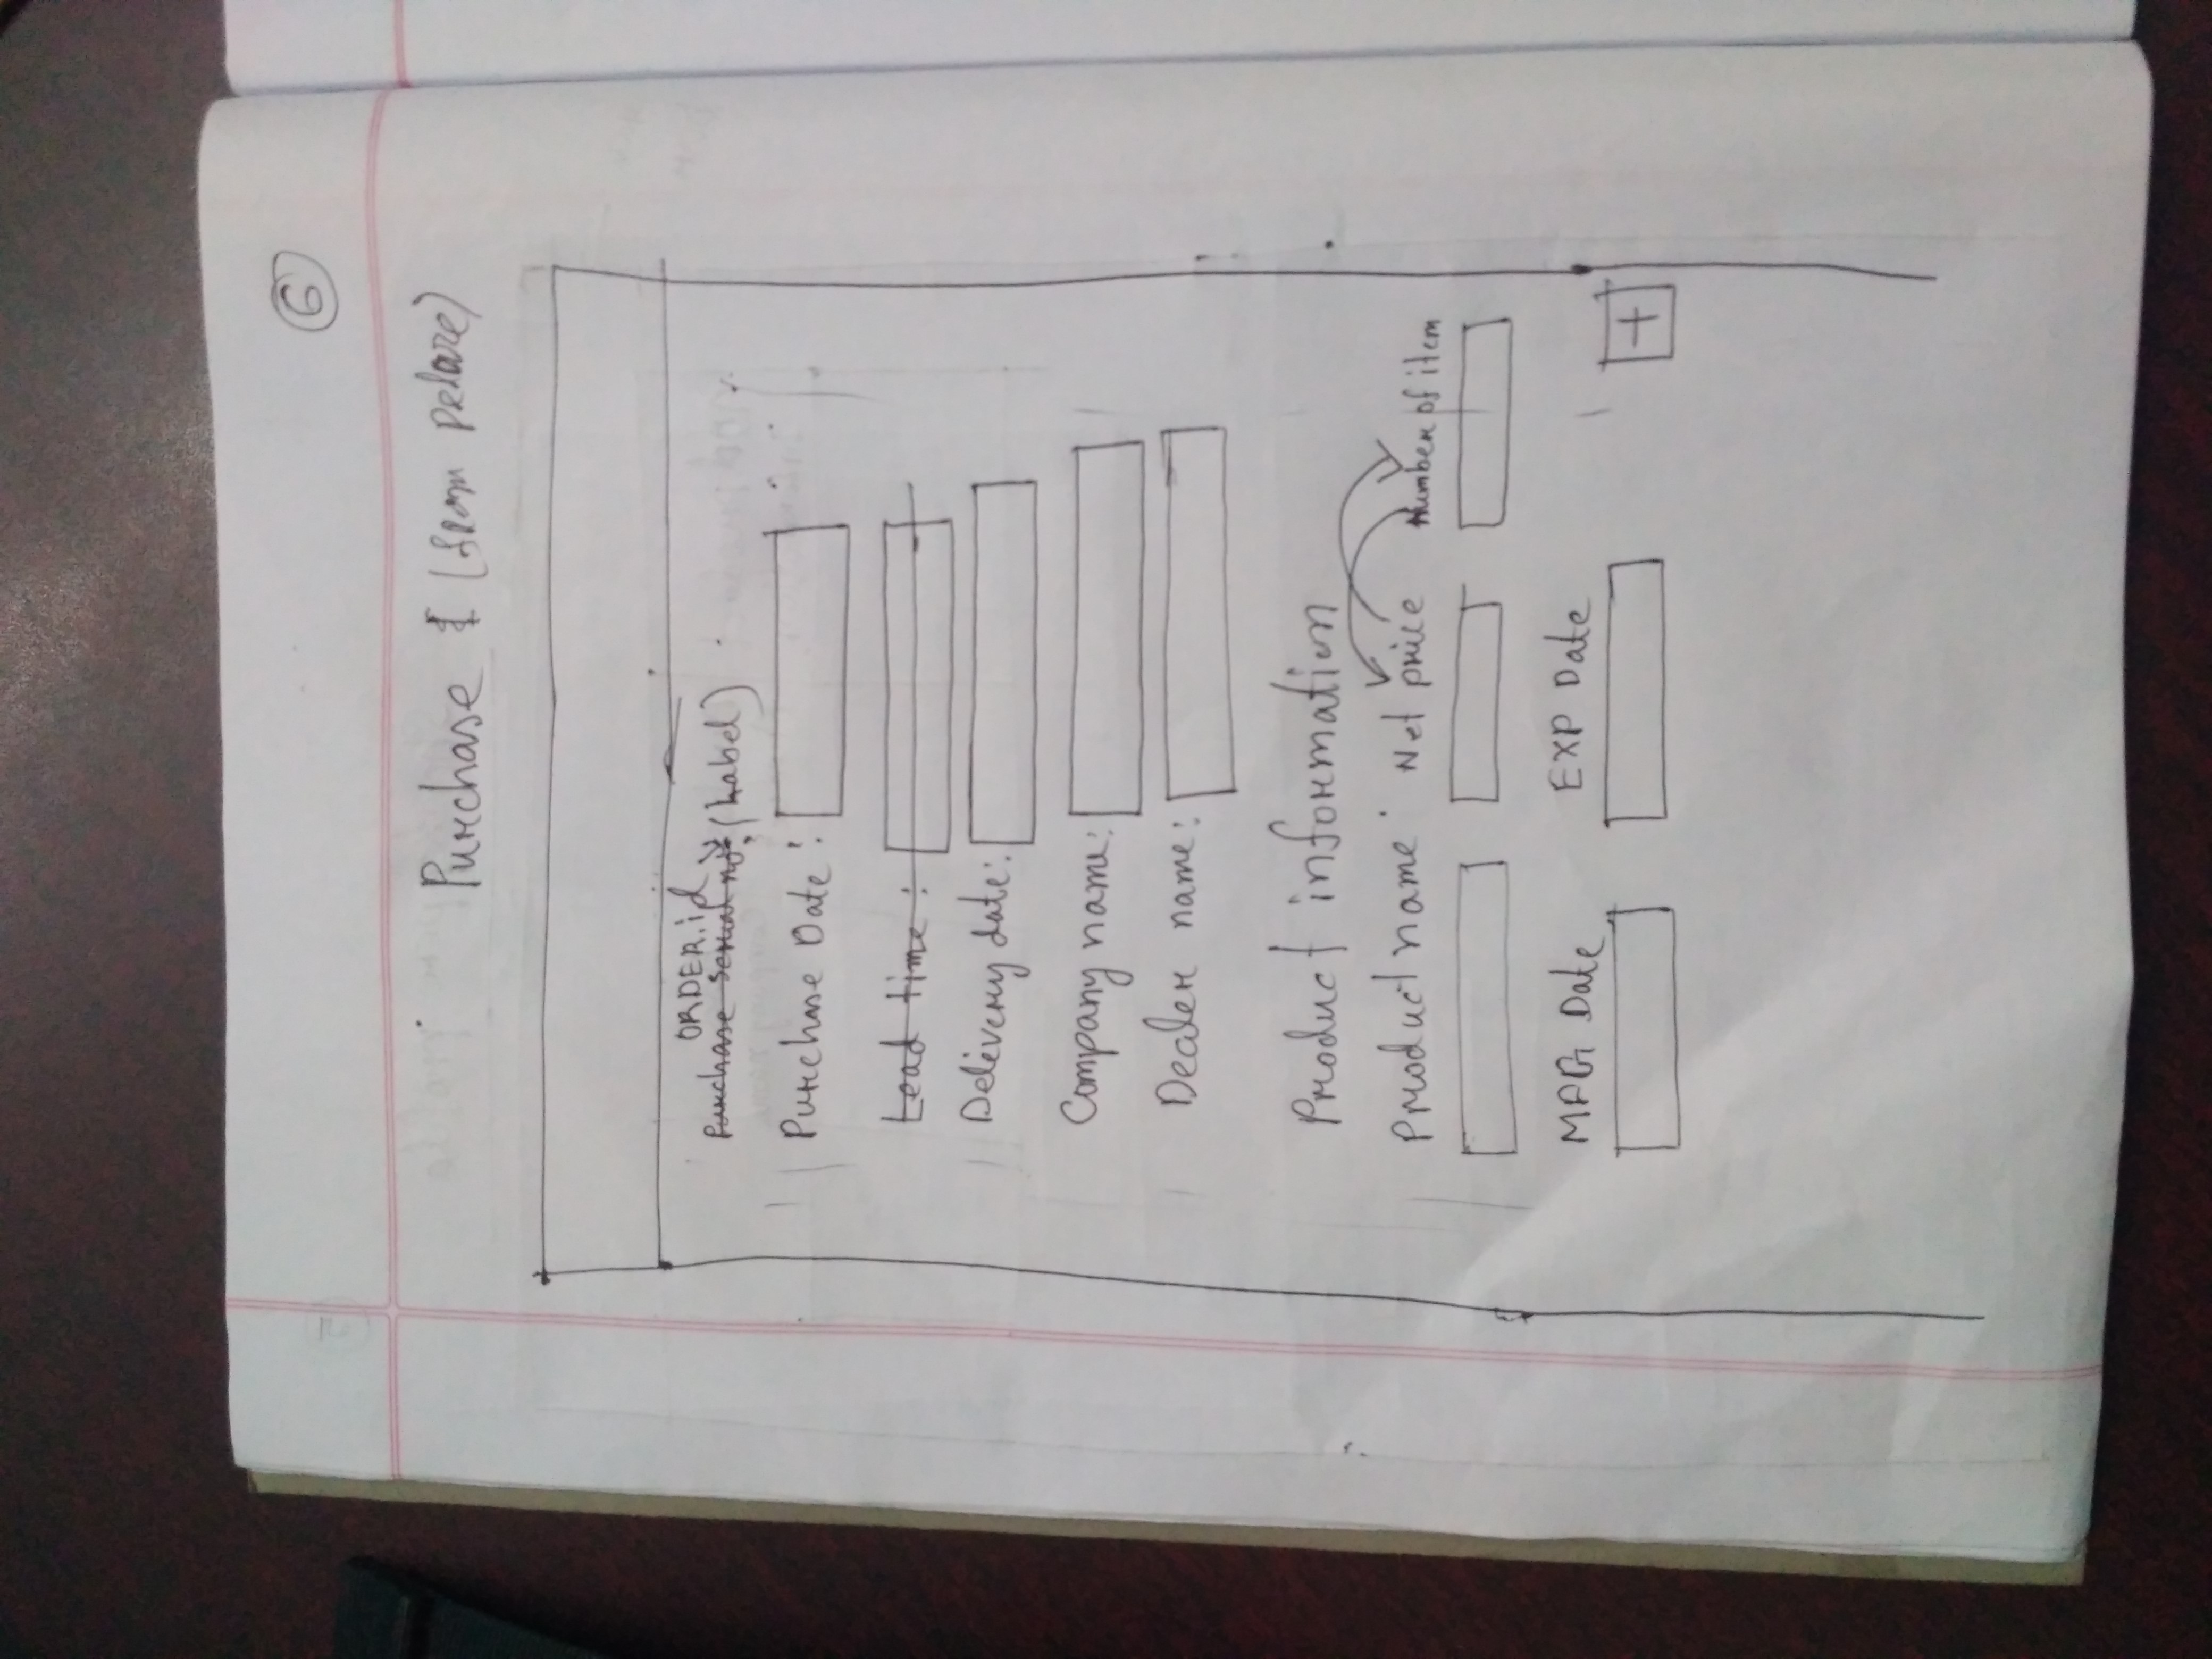 6
Purchase (from Pelare)
ORDER.id
Purchase Serial no: (Label)
Purchase Date:
Lead time:
Delivery date:
Company name:
Dealer name:
Product information
Product name Net price Number of item
MFG Date EXP Date
+